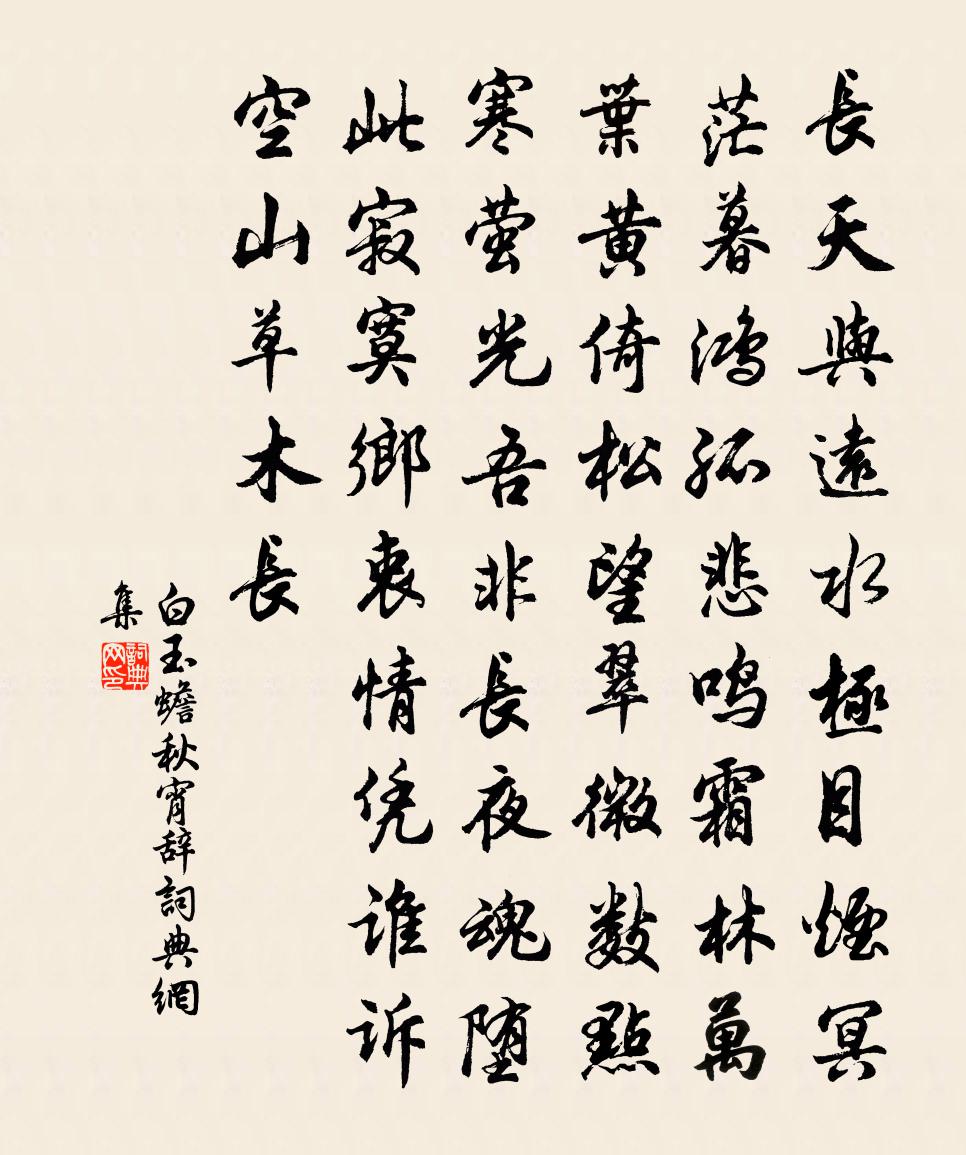 長天與遠水極目煙冥
茫暮鴻孤悲鳴霜林萬
葉黄倚松望翠微數點
寒螢光吾非長夜魂堕
此寂寞鄉衷情凭誰诉
空山草木長
白玉蟾秋宵辞詞典網
集
詞典网印